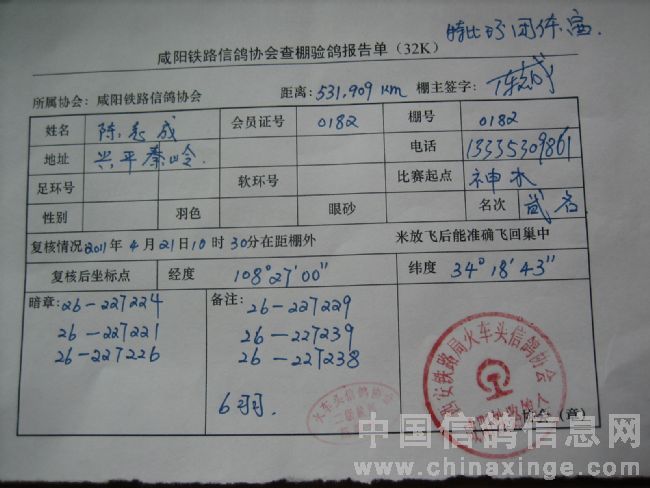 特比环团体赛
咸阳铁路信鸽协会查棚验鸽报告单（32K）
所属协会：咸阳铁路信鸽协会 距离：531.909 km 棚主签字：
姓名 陈志成 会员证号 0182 棚号 0182
地址 兴平秦岭 电话 13335309861
足环号 软环号 比赛起点 神木
性别 羽色 眼砂 名次 贰名
复核情况 2011年 4月 21日 10时 30分在距棚外 米放飞后能准确飞回巢中
复核后坐标点 经度 108°27′00″ 纬度 34°18′43″
暗章：26-227224 备注：26-227229
26-227221 26-227239
26-227226 26-227238
6羽.
火车头信鸽协会
西安铁路局火车头信鸽协会
协会（章）
中国信鸽信息网
www.chinaxinge.com